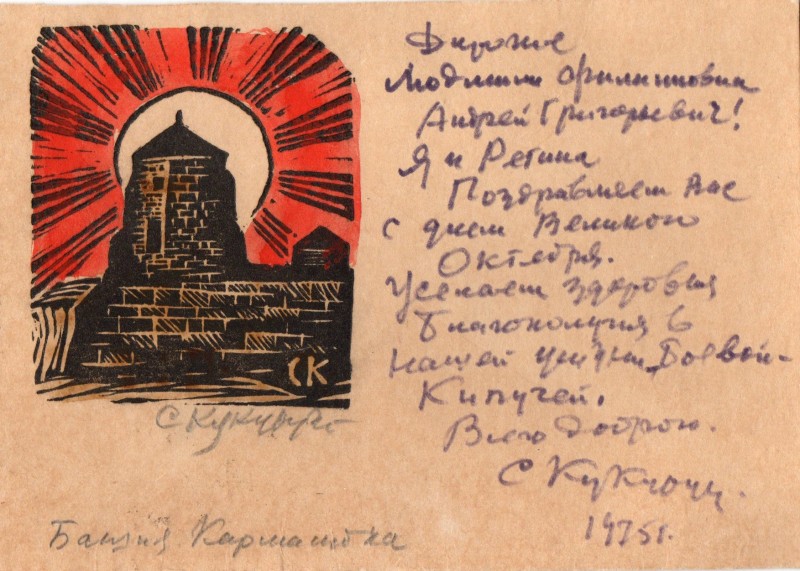 СК
С Кукуруз
Башня Кармалюка
Дорогие
Людмила Филипповна
Андрей Григорьевич!
Я и Регина
Поздравляем Вас
с днем Великого
Октября.
Желаем здоровья
Благополучия в
нашей жизни „Боевой-
Кипучей.
Всего доброго.
С Кукуруз.
1975г.